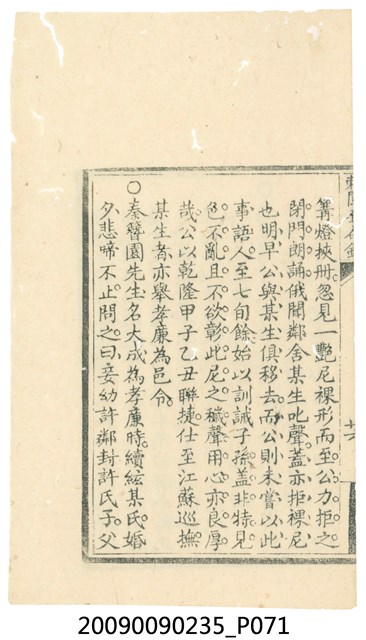 篝燈挾冊忽見一艷尼裸形而至公力拒之
閉門朗誦俄聞鄰舍某生叱聲蓋亦拒裸尼
也明早公與某生俱移去而公則未嘗以此
事語人至七旬餘始以訓誡子孫蓋非特見
色不亂且不欲彰此尼之穢聲用心亦良厚
哉公以乾隆甲子乙丑聯捷仕至江蘇巡撫
某生者亦舉孝廉為邑令
○秦簪園先生名大成為孝廉時續絃某氏婚
夕悲啼不止問之曰妾幼許鄰封許氏子父
20090090235_P071